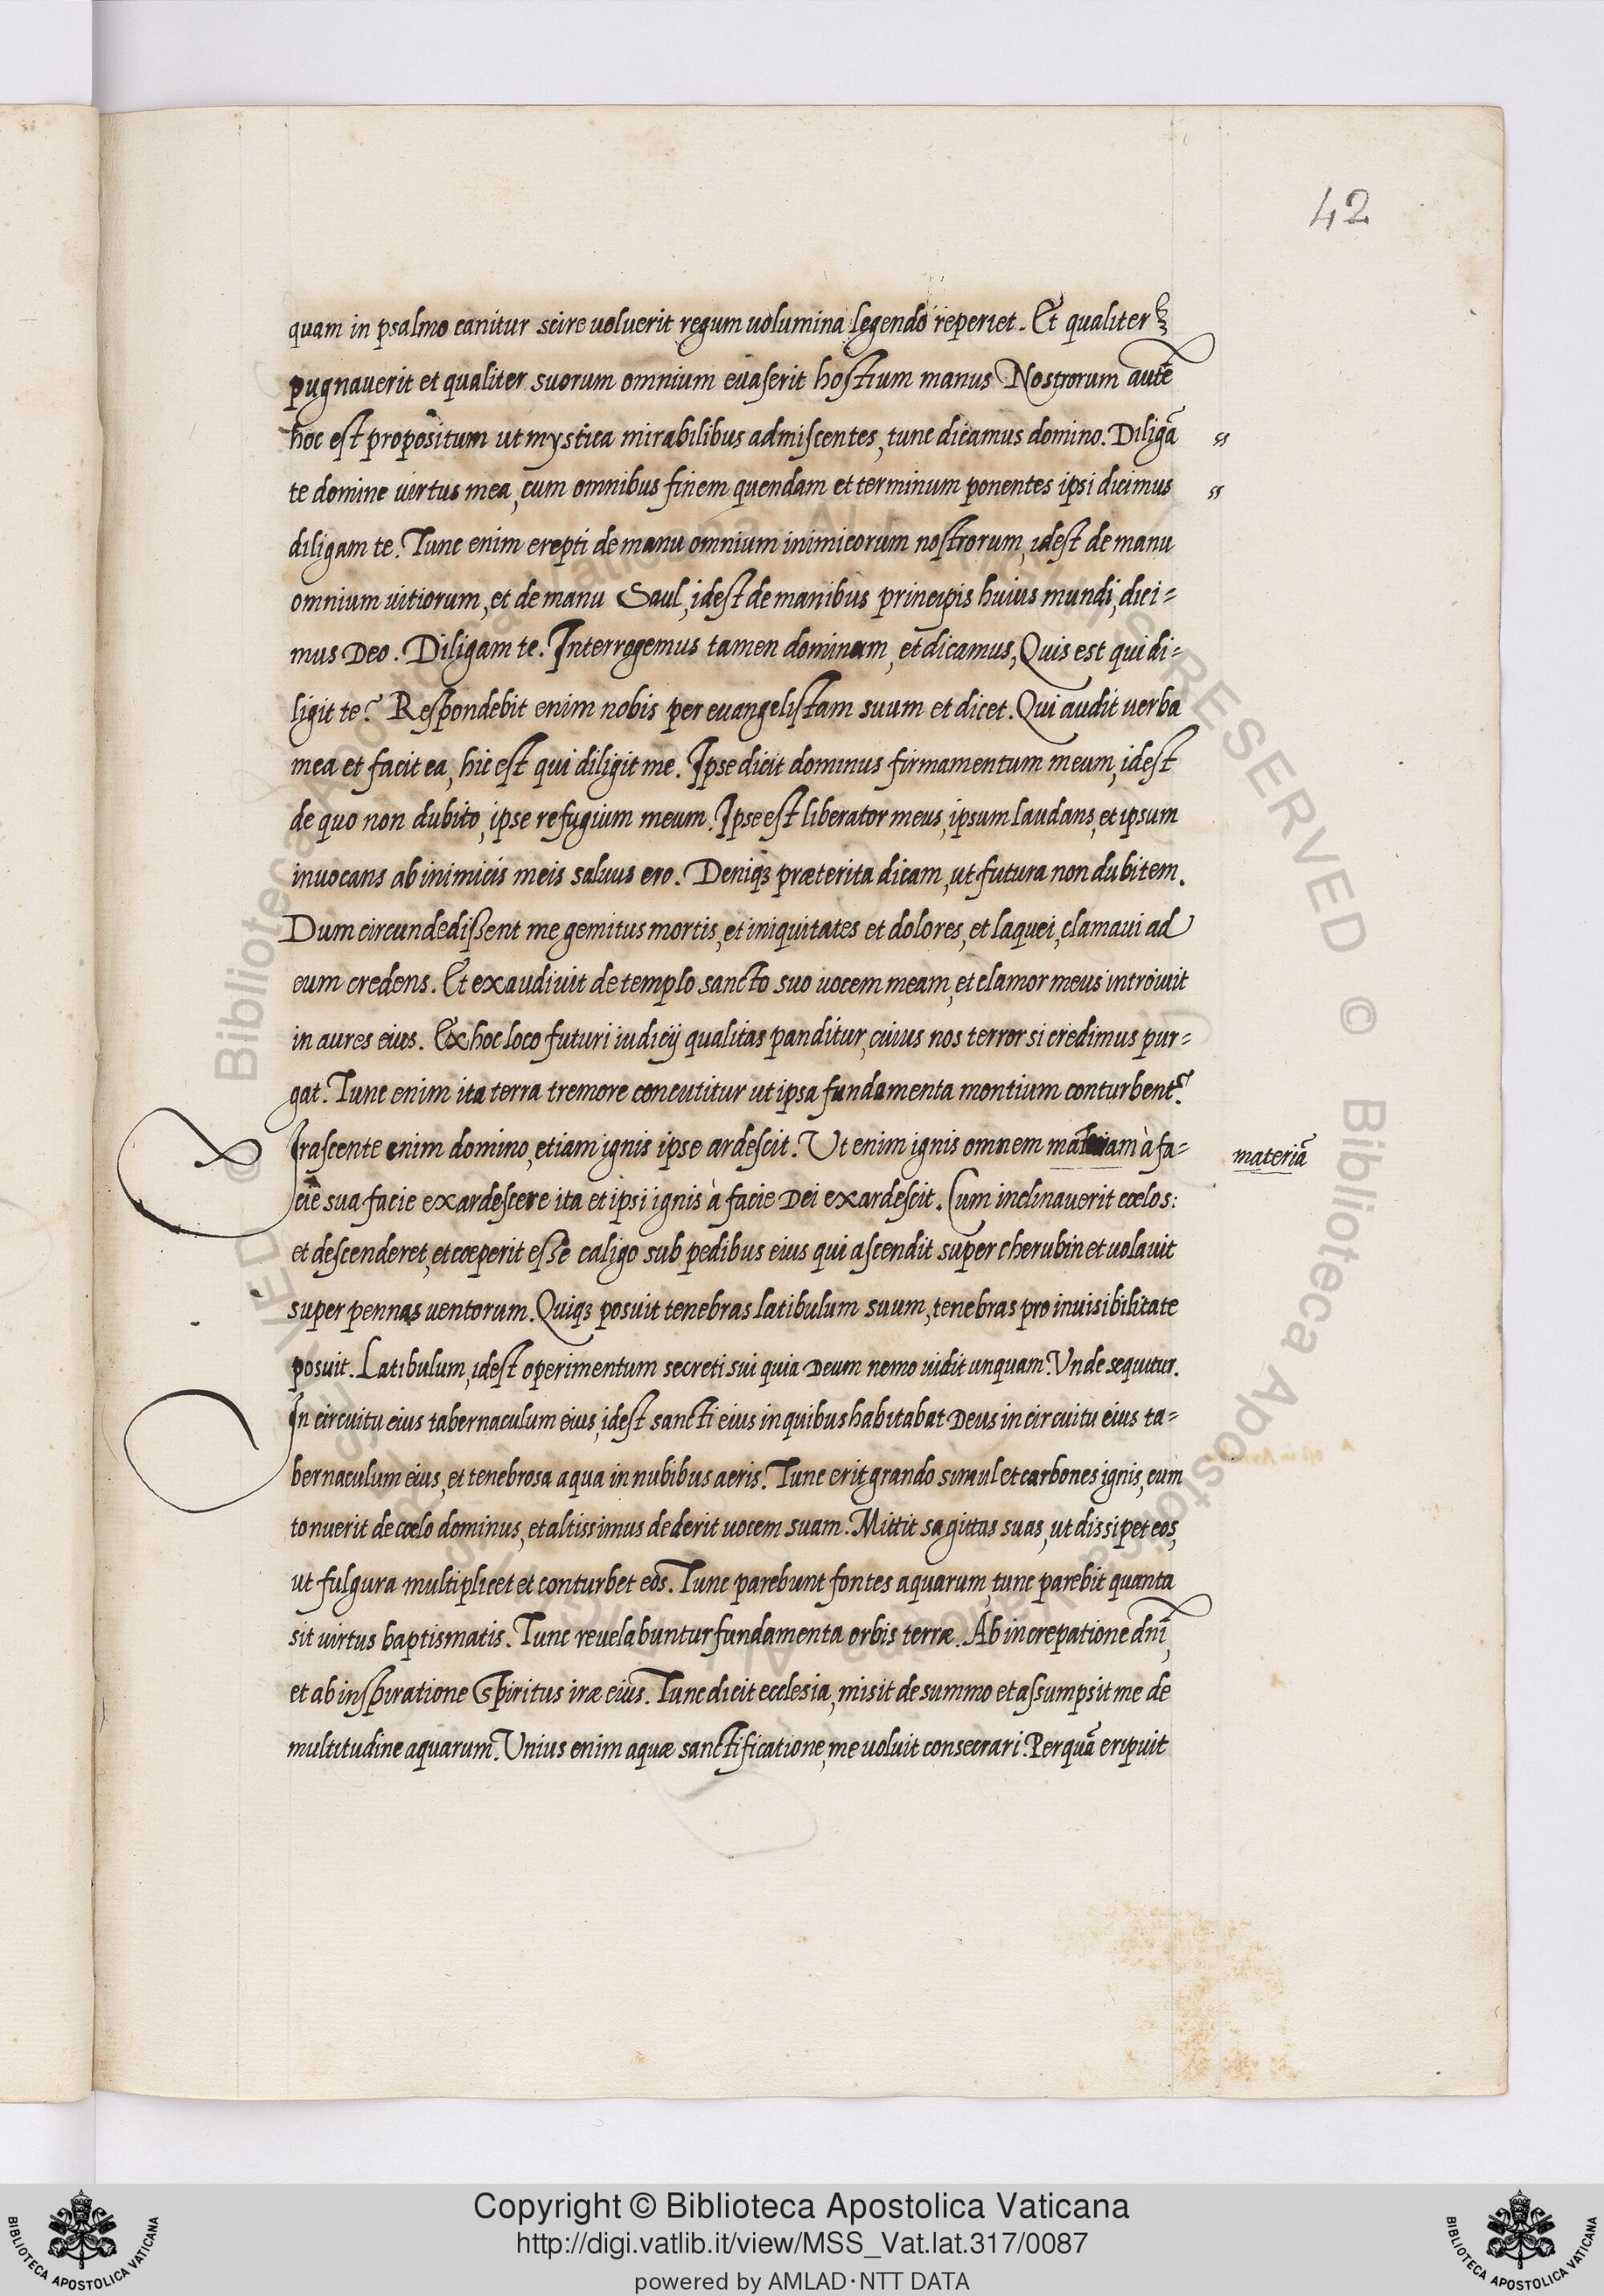 42
quam in psalmo canitur scire uoluerit regum uolumina legendo reperiet. Et qualiter
pugnauerit et qualiter suorum omnium euaserit hostium manus Nostrorum autẽ
hoc est propositum ut mystica mirabilibus admiscentes, tunc dicamus domino. Diligã
te domine uirtus mea, cum omnibus finem quendam et terminum ponentes ipsi dicimus
diligam te. Tunc enim erepti de manu omnium inimicorum nostrorum, idest de manu
omnium uitiorum, et de manu Saul, idest de manibus principis huius mundi, dici=
mus Deo. Diligam te. Interrogemus tamen dominum, et dicamus, Quis est qui di=
ligit te? Respondebit enim nobis per euangelistam suum et dicet. Qui audit uerba
mea et facit ea, hic est qui diligit me. Ipse dicit dominus firmamentum meum, idest
de quo non dubito, ipse refugium meum. Ipse est liberator meus, ipsum laudans, et ipsum
inuocans ab inimicis meis saluus ero. Deniqȝ præterita dicam, ut futura non dubitem.
Dum circundedißent me gemitus mortis, et iniquitates et dolores, et laquei, clamaui ad
eum credens. Et exaudiuit de templo sancto suo uocem meam, et clamor meus introiuit
in aures eius. Ex hoc loco futuri iudicij qualitas panditur, cuius nos terror si credimus pur=
gat. Tunc enim ita terra tremore concutitur ut ipsa fundamenta montium conturbent᷑.
Irascente enim domino, etiam ignis ipse ardescit. Ut enim ignis omnem materiam à fa=
materiã
cie sua facie exardescere ita et ipsi ignis à facie Dei exardescit. Cum inclinauerit cœlos:
et descenderet, et cœperit eße caligo sub pedibus eius qui ascendit super cherubin et uolauit
super pennas uentorum. Quiqȝ posuit tenebras latibulum suum, tenebras pro inuisibilitate
posuit. Latibulum, idest operimentum secreti sui quia Deum nemo uidit unquam. Vnde sequitur.
In circuitu eius tabernaculum eius, idest sancti eius in quibus habitabat Deus in circuitu eius ta=
bernaculum eius, et tenebrosa aqua in nubibus aeris. Tunc erit grando simul et carbones ignis, cum
tonuerit de cœlo dominus, et altissimus dederit uocem suam. Mittit sagittas suas, ut dissipet eos,
ut fulgura multiplicet et conturbet eos. Tunc parebunt fontes aquarum, tunc parebit quanta
sit uirtus baptismatis. Tunc reuelabuntur fundamenta orbis terræ. Ab increpatione dnĩ,
et ab inspiratione Spiritus iræ eius. Tunc dicit ecclesia, misit de summo et assumpsit me de
multitudine aquarum. Vnius enim aquæ sanctificatione, me uoluit consecrari. Per quã eripuit
© Biblioteca Apostolica Vaticana ALL RIGHTS RESERVED © Biblioteca Apostolica Vaticana ALL RIGHTS RESERVED
Copyright © Biblioteca Apostolica Vaticana
http://digi.vatlib.it/view/MSS_Vat.lat.317/0087
powered by AMLAD·NTT DATA
BIBLIOTECA APOSTOLICA VATICANA
BIBLIOTECA APOSTOLICA VATICANA